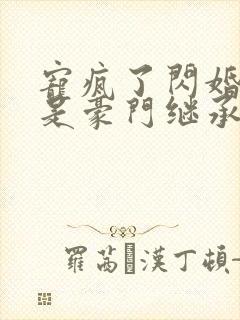 寵瘋了閃婚
是豪門继承
羅茜·漢丁頓-